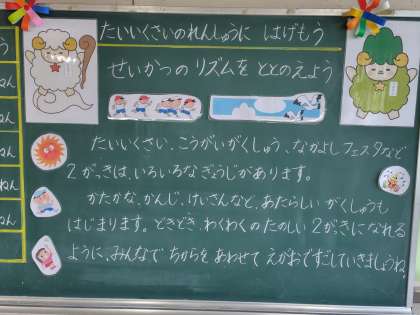 たいいくさいのれんしゅうに はげもう
せいかつの リズムを ととのえよう
たいいくさい、こうがいがくしゅう、なかよしフェスタなど
2がっきは、いろいろなぎょうじがあります。
かたかな、かんじ、けいさんなど、あたらしい がくしゅうも
はじまります。どきどき、わくわくの たのしい 2がっきになれる
ように、みんなで ちからを あわせて えがおですごしていきましょうね。
う
ねん
ねん
ねん
ねん